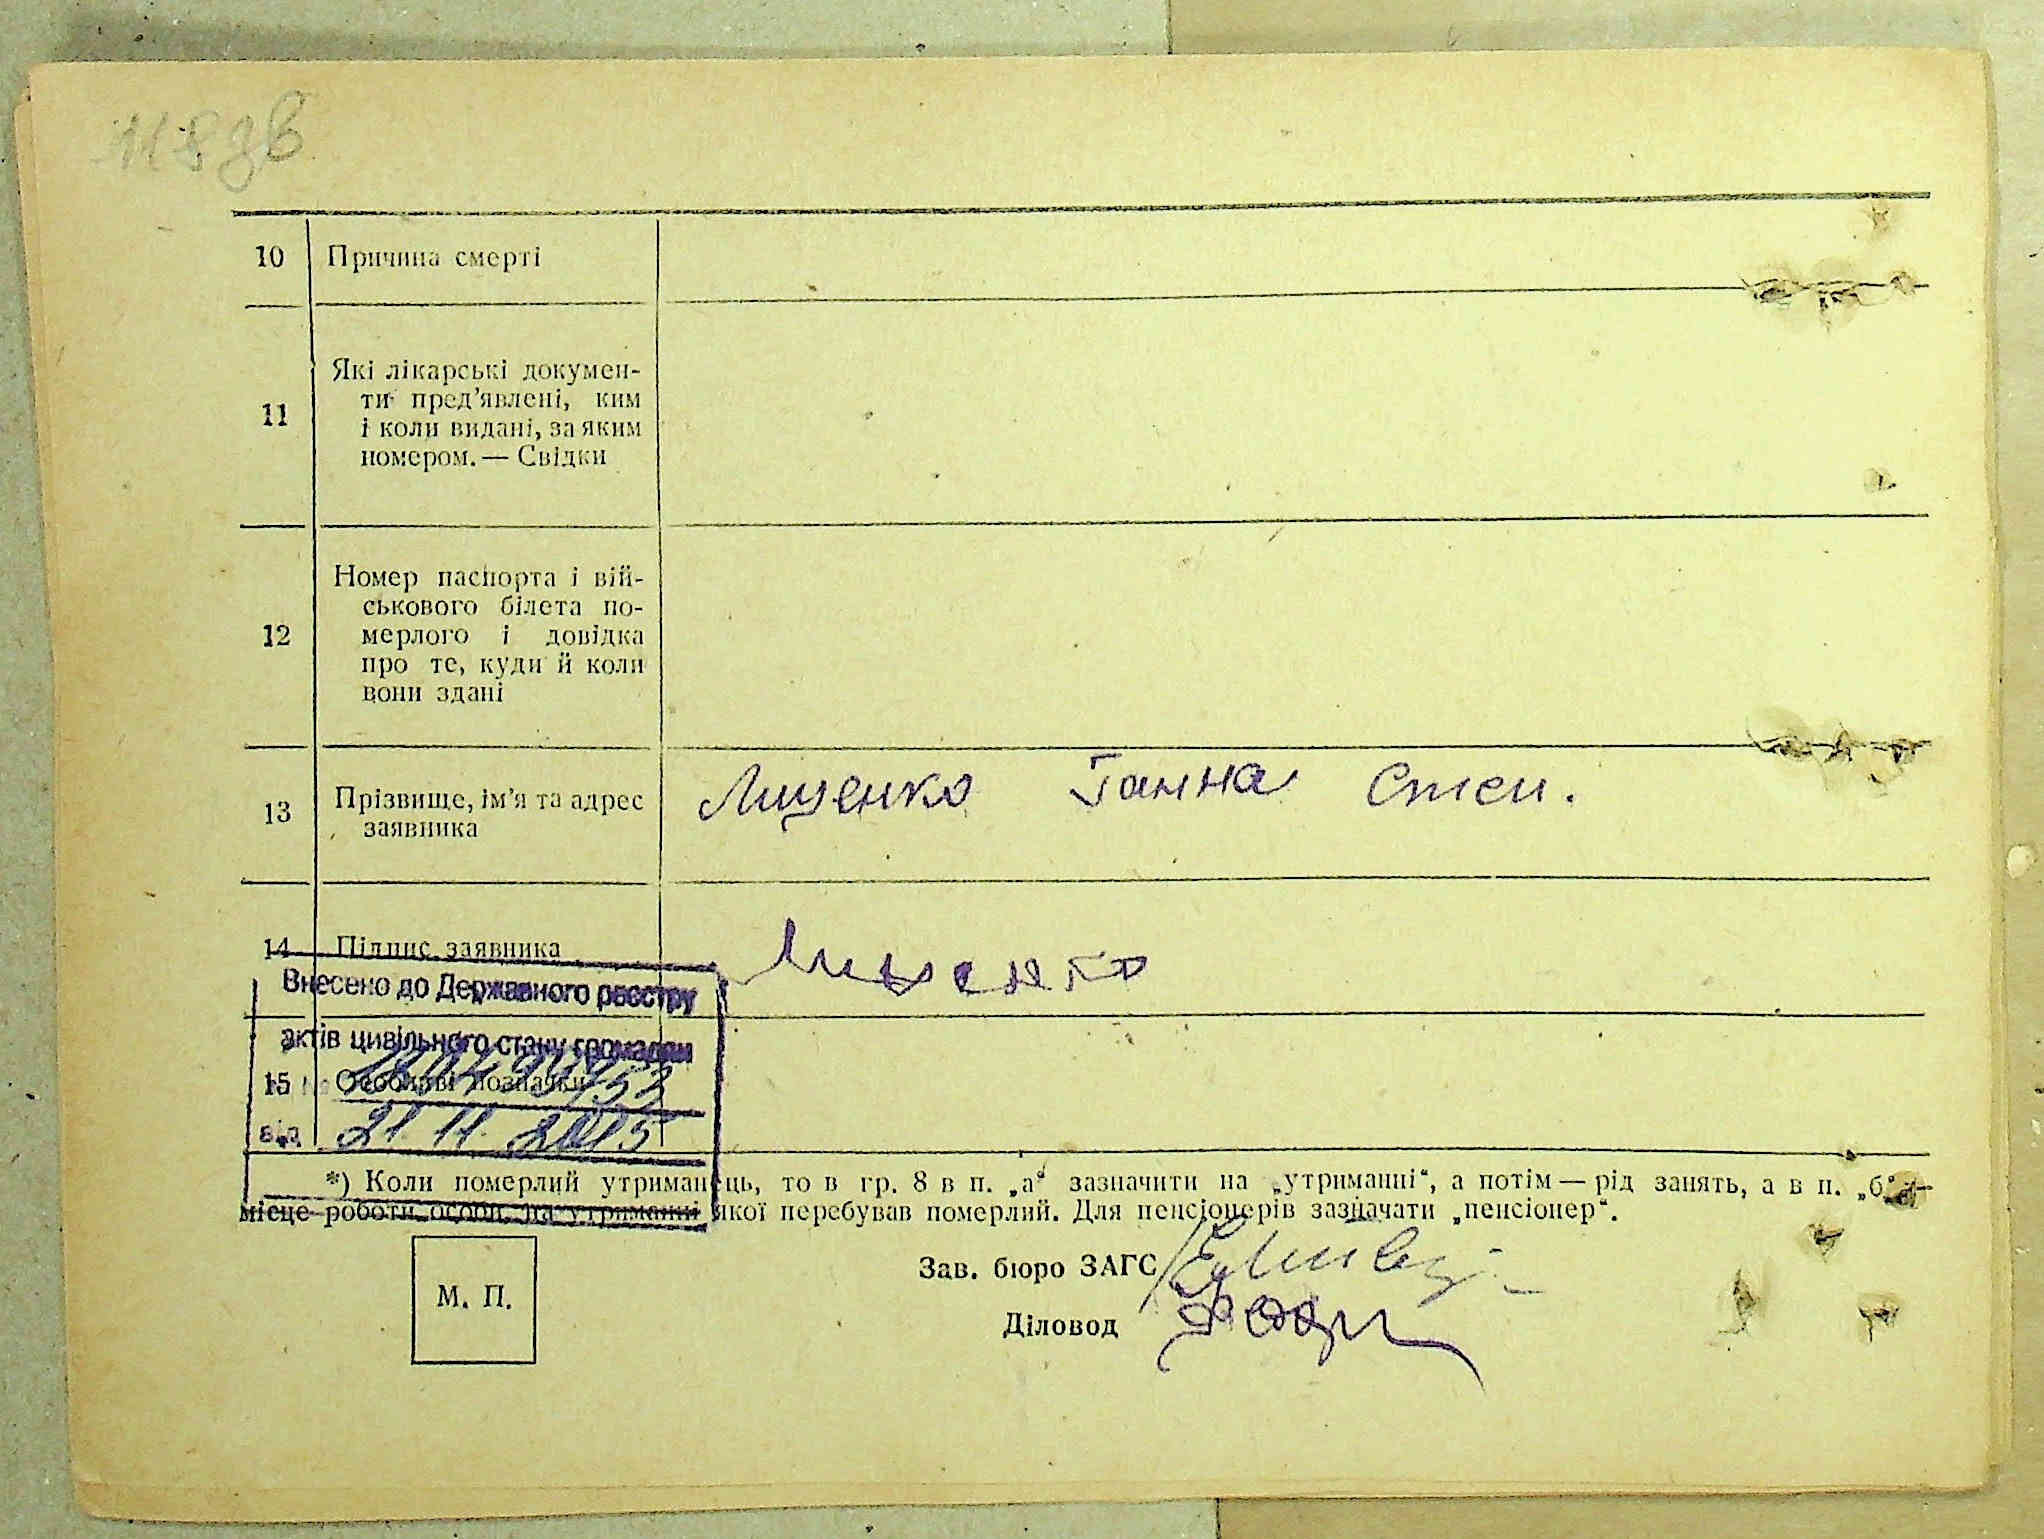 118 зв
10 Причина смерті
11 Які лікарські докумен-
ти пред'явлені, ким
і коли видані, за яким
номером. — Свідки
12 Номер паспорта і вій-
ськового білета по-
мерлого і довідка
про те, куди й коли
вони здані
13 Прізвище, ім'я та адрес
заявника
Лищенко Ганна Степ.
14 Підпис заявника
Внесено до Державного реєстру
актів цивільного стану громадян
15 Особливі позначки
від 21 11 2015
*) Коли померлий утриманець, то в гр. 8 в п. „а“ зазначити на „утриманні“, а потім — рід занять, а в п. „б“ —
місце роботи особи, на утриманні якої перебував померлий. Для пенсіонерів зазначати „пенсіонер“.
Зав. бюро ЗАГС
М. П.
Діловод